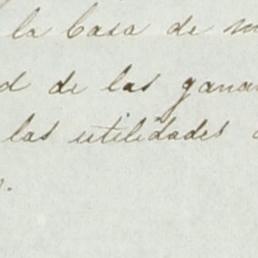 la Casa de
d de las
las utilidades